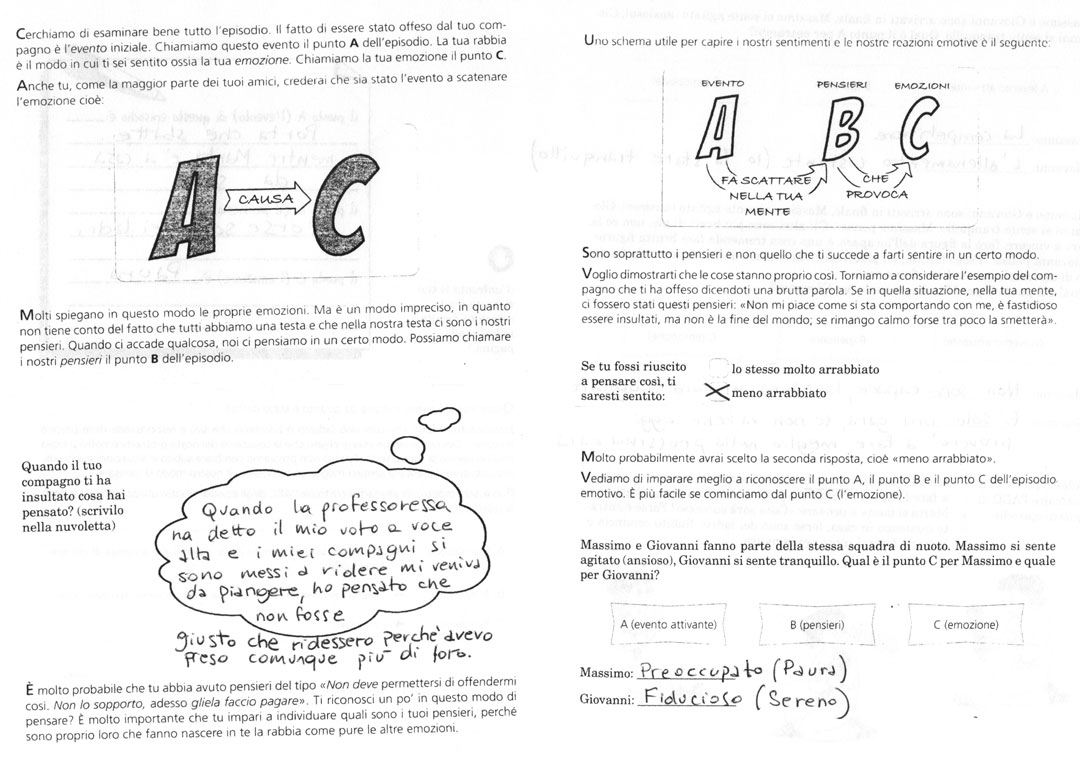 Cerchiamo di esaminare bene tutto l'episodio. Il fatto di essere stato offeso dal tuo com-
pagno è l'evento iniziale. Chiamiamo questo evento il punto A dell'episodio. La tua rabbia
è il modo in cui ti sei sentito ossia la tua emozione. Chiamiamo la tua emozione il punto C.
Anche tu, come la maggior parte dei tuoi amici, crederai che sia stato l'evento a scatenare
l'emozione cioè:
A CAUSA C
Molti spiegano in questo modo le proprie emozioni. Ma è un modo impreciso, in quanto
non tiene conto del fatto che tutti abbiamo una testa e che nella nostra testa ci sono i nostri
pensieri. Quando ci accade qualcosa, noi ci pensiamo in un certo modo. Possiamo chiamare
i nostri pensieri il punto B dell'episodio.
Quando il tuo
compagno ti ha
insultato cosa hai
pensato? (scrivilo
nella nuvoletta)
Quando la professoressa
ha detto il mio voto a voce
alta e i miei compagni si
sono messi a ridere mi veniva
da piangere, ho pensato che
non fosse
giusto che ridessero perchè avevo
preso comunque più di loro.
È molto probabile che tu abbia avuto pensieri del tipo «Non deve permettersi di offendermi
così. Non lo sopporto, adesso gliela faccio pagare». Ti riconosci un po' in questo modo di
pensare? È molto importante che tu impari a individuare quali sono i tuoi pensieri, perché
sono proprio loro che fanno nascere in te la rabbia come pure le altre emozioni.
Uno schema utile per capire i nostri sentimenti e le nostre reazioni emotive è il seguente:
EVENTO PENSIERI EMOZIONI
A B C
FA SCATTARE CHE
NELLA TUA PROVOCA
MENTE
Sono soprattutto i pensieri e non quello che ti succede a farti sentire in un certo modo.
Voglio dimostrarti che le cose stanno proprio così. Torniamo a considerare l'esempio del com-
pagno che ti ha offeso dicendoti una brutta parola. Se in quella situazione, nella tua mente,
ci fossero stati questi pensieri: «Non mi piace come si sta comportando con me, è fastidioso
essere insultati, ma non è la fine del mondo; se rimango calmo forse tra poco la smetterà».
Se tu fossi riuscito
a pensare così, ti
saresti sentito:
lo stesso molto arrabbiato
meno arrabbiato
Molto probabilmente avrai scelto la seconda risposta, cioè «meno arrabbiato».
Vediamo di imparare meglio a riconoscere il punto A, il punto B e il punto C dell'episodio
emotivo. È più facile se cominciamo dal punto C (l'emozione).
Massimo e Giovanni fanno parte della stessa squadra di nuoto. Massimo si sente
agitato (ansioso), Giovanni si sente tranquillo. Qual è il punto C per Massimo e quale
per Giovanni?
A (evento attivante) B (pensieri) C (emozione)
Massimo: Preoccupato (Paura)
Giovanni: Fiducioso (Sereno)